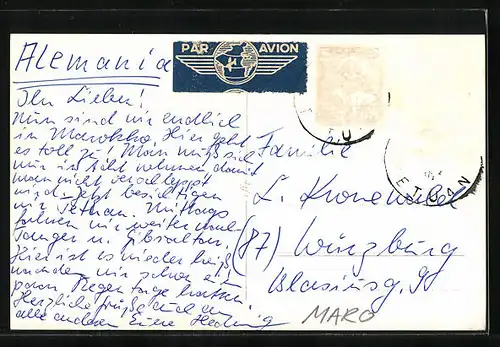 Alemania
PAR AVION
Ihr Lieben!
Nun sind wir endlich
in Marokko. Hier geht
es toll zu. Man muß sich
nur in Acht nehmen damit
man nicht verschleppt
wird. Jetzt besichtigen
wir Tetuan. Mittags
fahren wir weiter nach
Tanger u. Gibraltar.
Hier ist es wieder heiß
nachdem wir schon ein
paar Regentage hatten.
Herzliche Grüße auch an
alle anderen Eure Hedwig
Familie
L. Kronenebel
(87) Würzburg
Blasiusg. 9
MARO
TETUAN